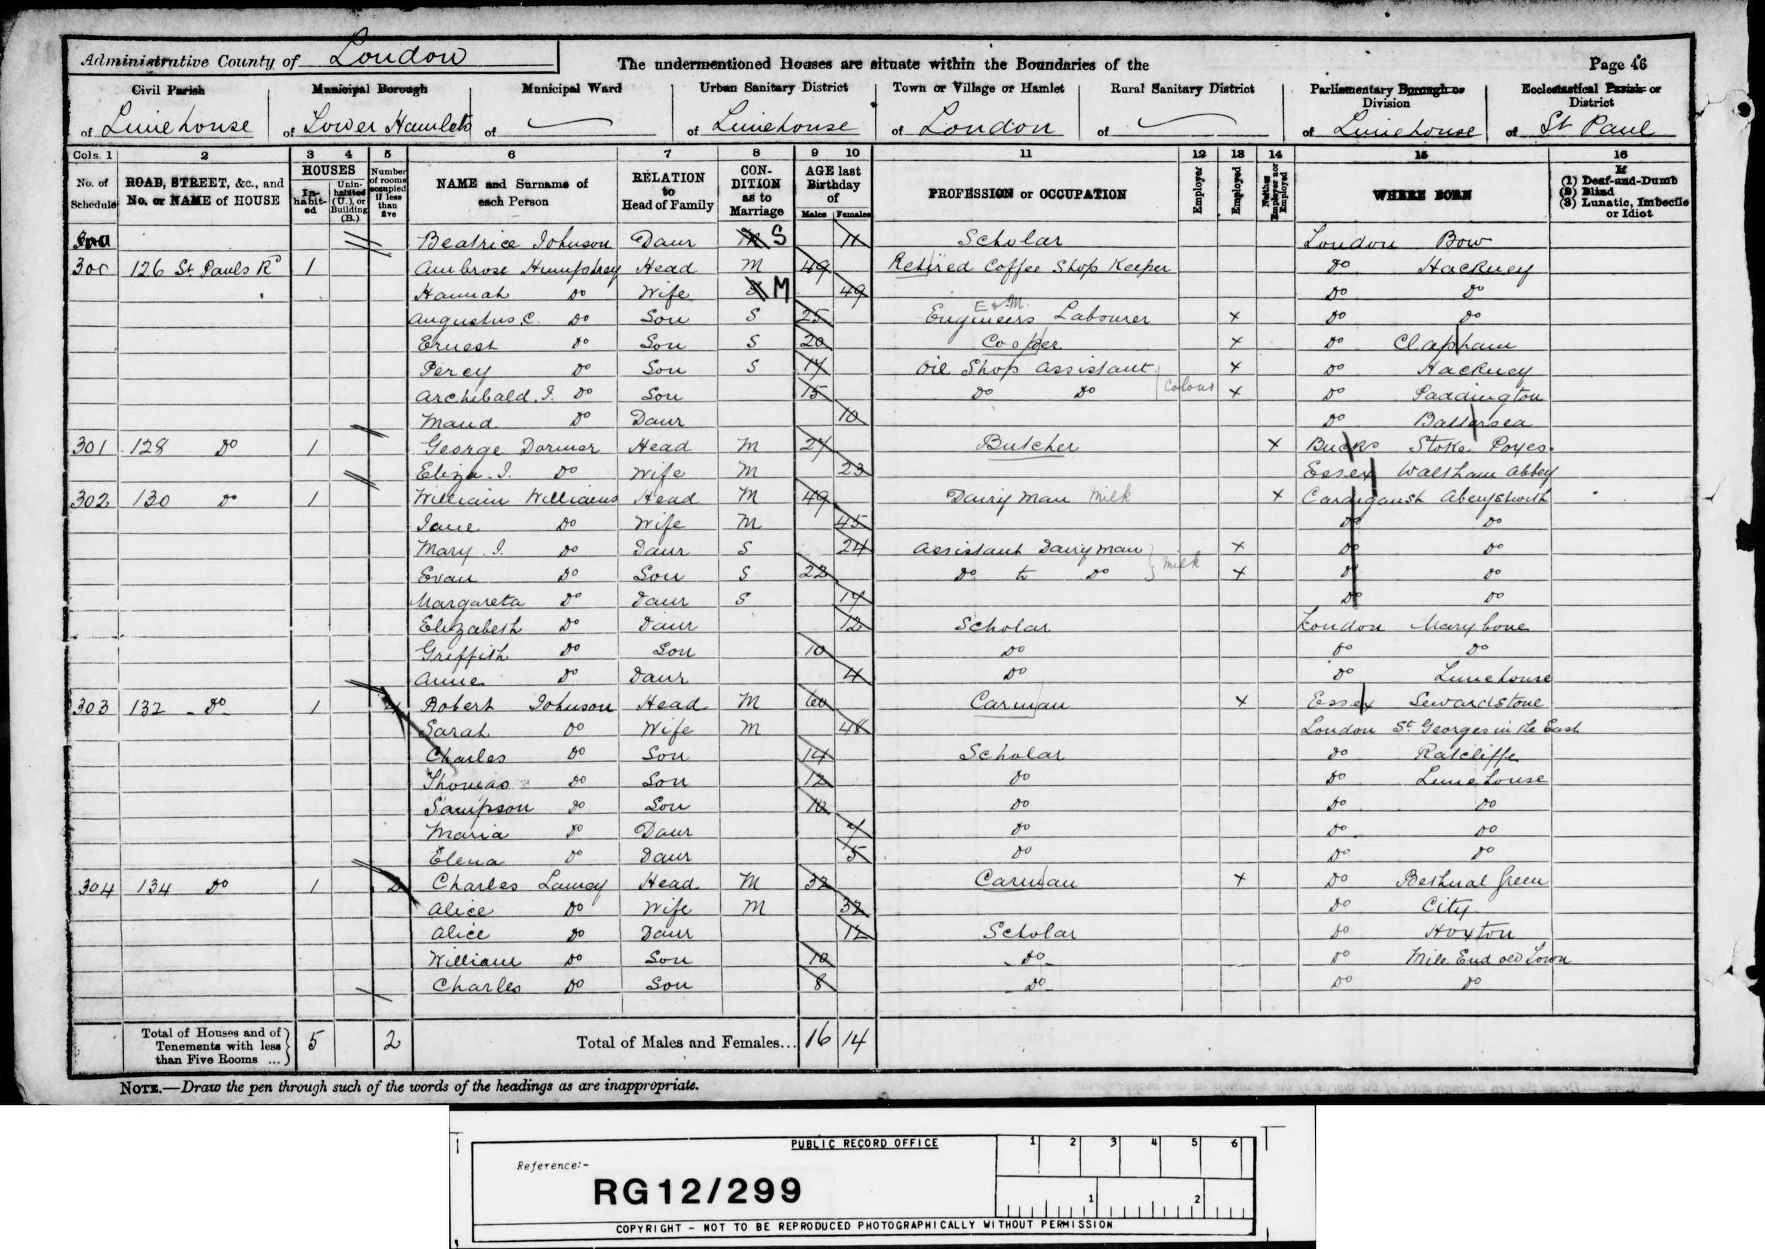 Administrative County of London
The undermentioned Houses are situate within the Boundaries of the
Page 46
Civil Parish of Limehouse
Municipal Borough of Lower Hamlets
Municipal Ward of
Urban Sanitary District of Limehouse
Town or Village or Hamlet of London
Rural Sanitary District of
Parliamentary Borough or Division of Limehouse
Ecclesiastical Parish or District of St Paul
Cols. 1 2 3 4 5 6 7 8 9 10 11 12 13 14 15 16
No. of Schedule
ROAD, STREET, &c., and No. or NAME of HOUSE
HOUSES
In-habit-ed
Unin-habited (U.), or Building (B.)
Number of rooms occupied if less than five
NAME and Surname of each Person
RELATION to Head of Family
CON-DITION as to Marriage
AGE last Birthday of
Males Females
PROFESSION or OCCUPATION
Employer
Employed
Neither Employer nor Employed
WHERE BORN
If
(1) Deaf-and-Dumb
(2) Blind
(3) Lunatic, Imbecile or Idiot
Beatrice Johnson Daur S 11 Scholar London Bow
300 126 St Pauls Rd 1 Ambrose Humphrey Head M 49 Retired Coffee Shop Keeper Do Hackney
Hannah Do Wife M 49 Do Do
E & M.
Augustus C. Do Son S 25 Engineers Labourer x Do Do
Ernest Do Son S 20 Cooper x Do Clapham
Percy Do Son S 17 Oil Shop Assistant x Do Hackney
Archibald. J. Do Son 15 Do Do colour x Do Paddington
Maud Do Daur 10 Do Battersea
301 128 Do 1 George Dormer Head M 27 Butcher x Bucks Stoke Poges
Eliza. J. Do Wife M 23 Essex Waltham Abbey
302 130 Do 1 William Williams Head M 49 Dairy man Milk x Cardigansh Aberystwith
Jane Do Wife M 45 Do Do
Mary. J. Do Daur S 24 Assistant Dairyman x Do Do
Evan Do Son S 22 Do to Do milk x Do Do
Margareta Do Daur S 17 Do Do
Elizabeth Do Daur 12 Scholar London Marybone
Griffith Do Son 10 Do Do Do
Anne Do Daur 4 Do Do Limehouse
303 132 Do 1 Robert Johnson Head M 60 Carman x Essex Sewardstone
Sarah Do Wife M 48 London St Georges in the East
Charles Do Son 14 Scholar Do Ratcliffe
Thomas Do Son 12 Do Do Limehouse
Sampson Do Son 10 Do Do Do
Maria Do Daur 7 Do Do Do
Elena Do Daur 5 Do Do Do
304 134 Do 1 2 Charles Head M 32 Carman x Do Bethnal Green
Alice Do Wife M 32 Do City
Alice Do Daur 12 Scholar Do Hoxton
William Do Son 10 Do Do Mile End Old Town
Charles Do Son 8 Do Do Do
Total of Houses and of Tenements with less than Five Rooms ... 5 2
Total of Males and Females... 16 14
NOTE.—Draw the pen through such of the words of the headings as are inappropriate.
PUBLIC RECORD OFFICE
1 2 3 4 5 6
Reference:-
RG 12/299
1 2
COPYRIGHT - NOT TO BE REPRODUCED PHOTOGRAPHICALLY WITHOUT PERMISSION